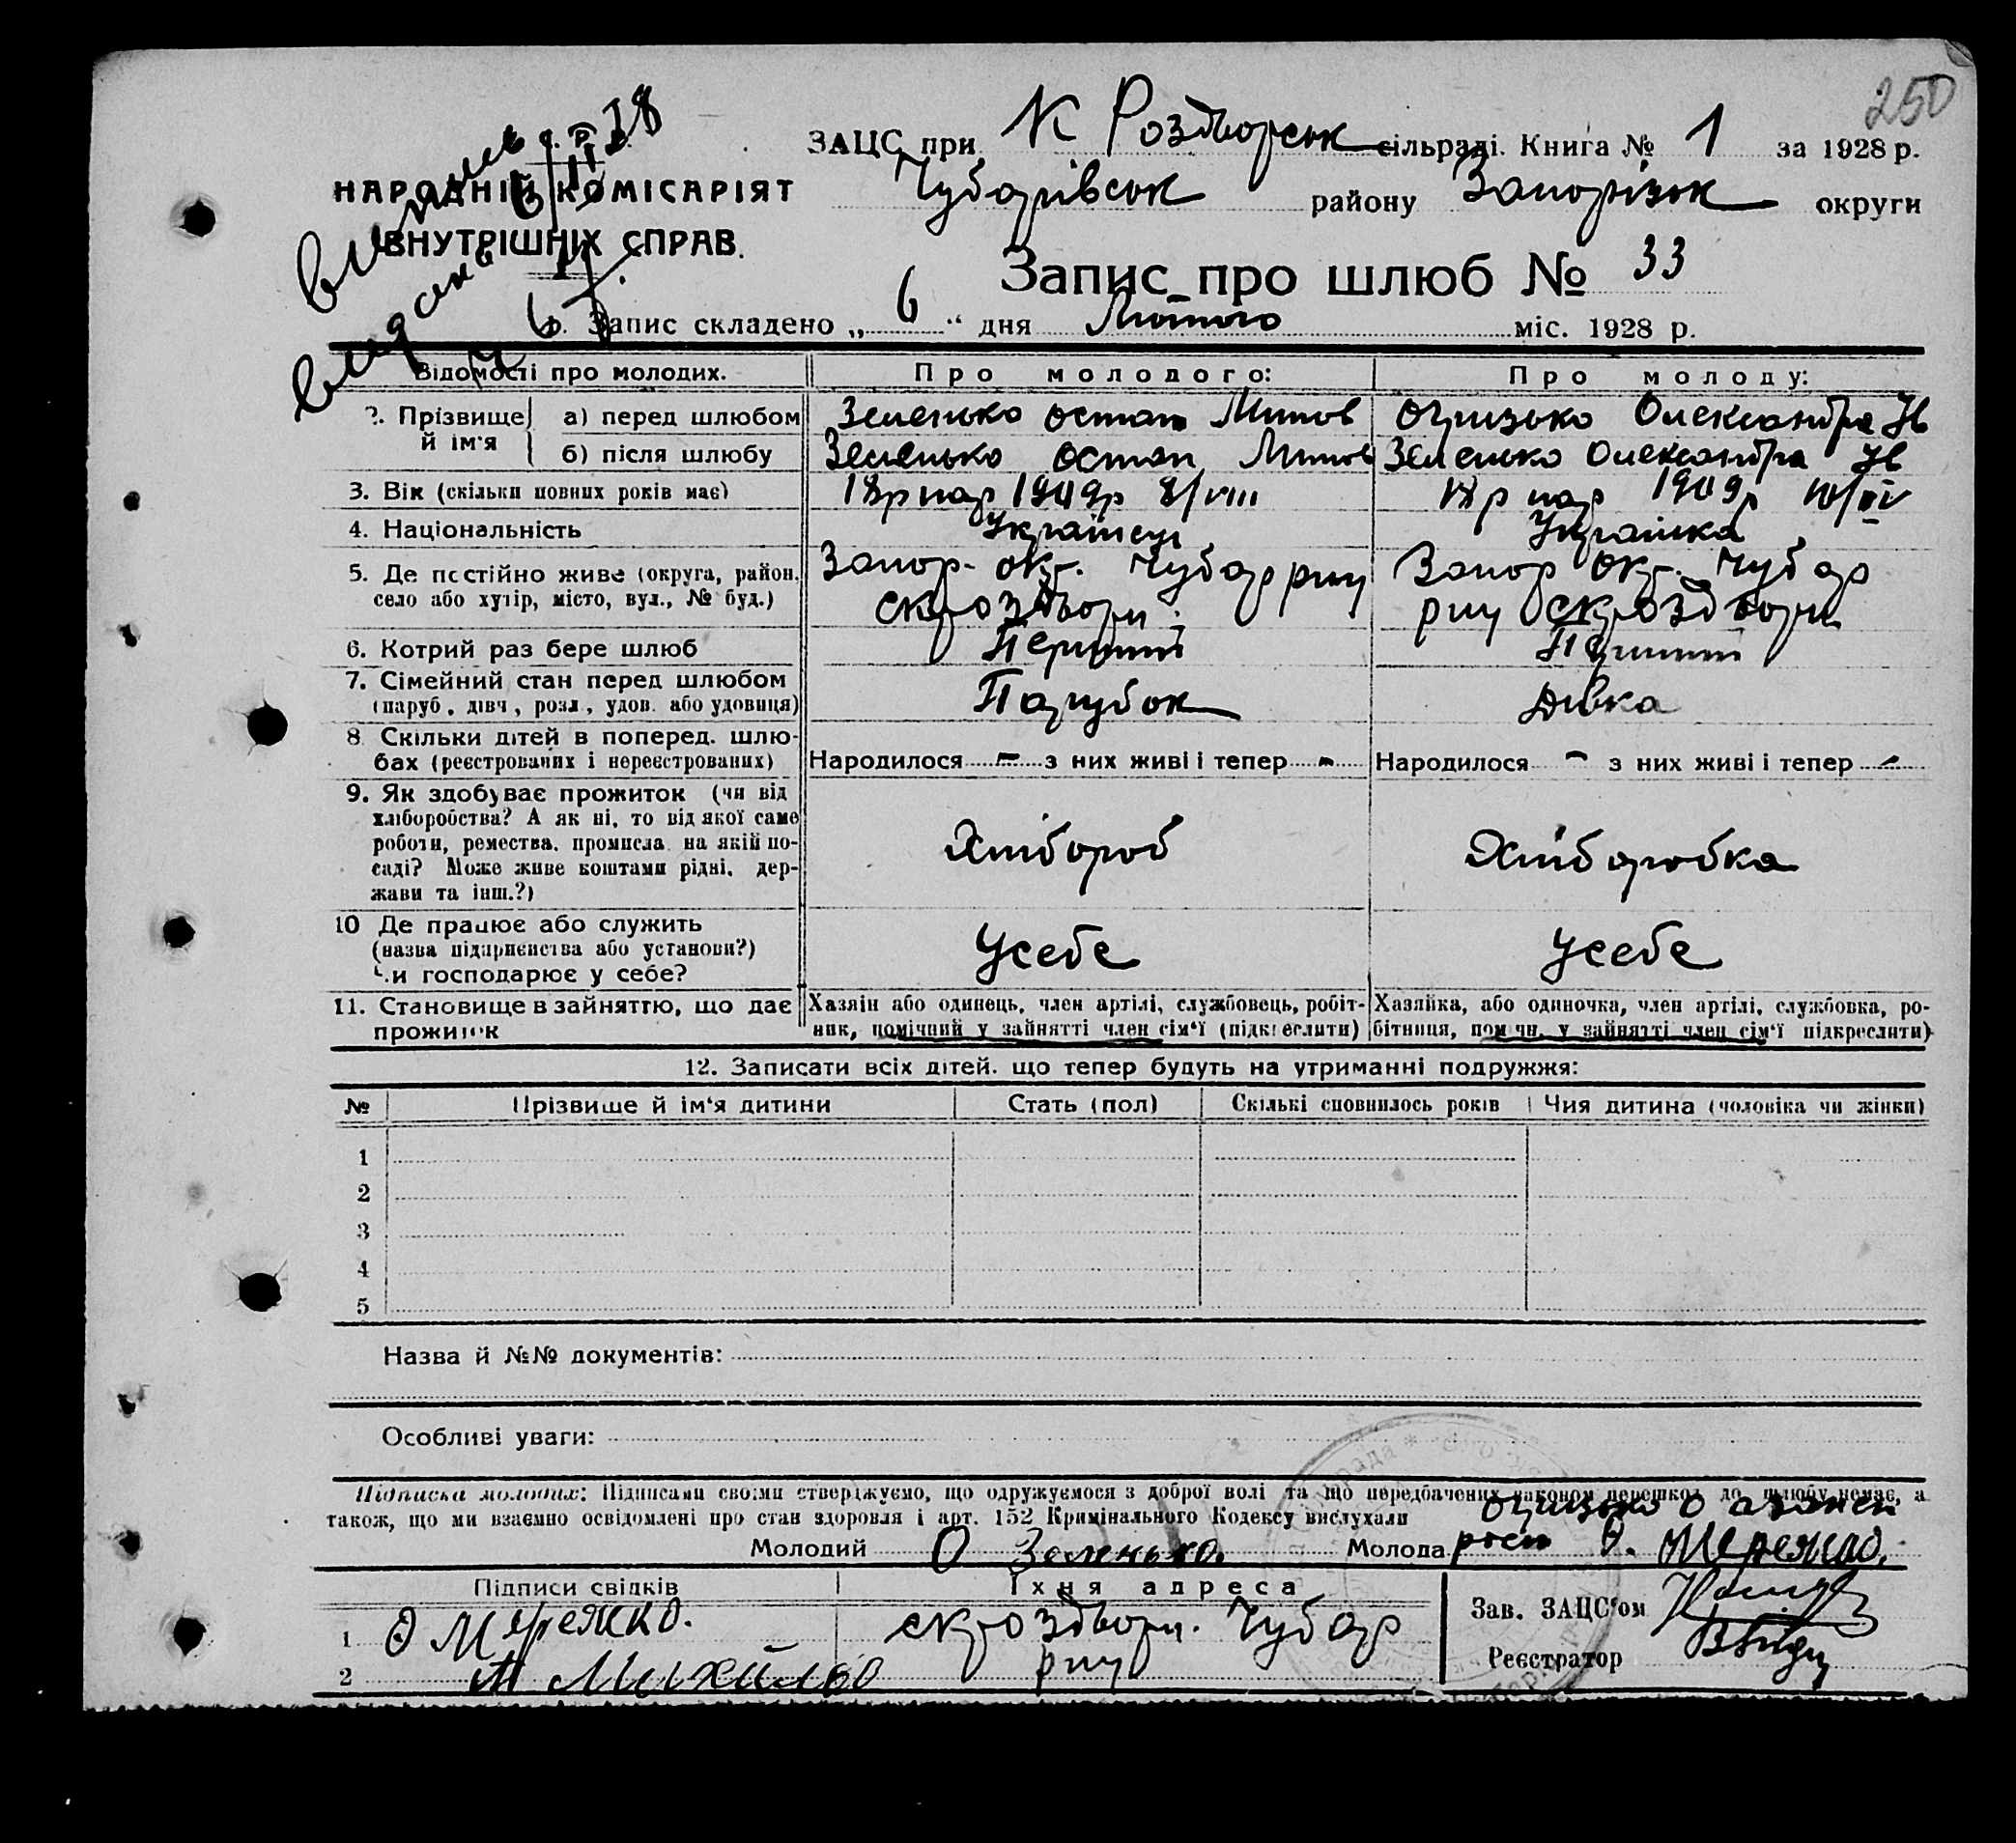 250
ЗАЦС при К Роздорськ сільраді. Книга № 1 за 1928 р.
НАРОДНІЙ КОМІСАРІЯТ
ВНУТРІШНІХ СПРАВ.
Чубарівськ району Запорізьк округи
Запис про шлюб № 33
Запис складено „ 6 “ дня Лютого міс. 1928 р.
Відомості про молодих. Про молодого: Про молоду:
2. Прізвище й ім'я
а) перед шлюбом Зеленько Остап Олександра Ів
б) після шлюбу Зеленько Остап Зеленько Олександра Ів
3. Вік (скільки повних років має) 18р нар 1909р 8/VIII 18р нар 1909р
4. Національність Українець Українка
5. Де постійно живе (округа, район, Запор. окр. Чубар рну Запор окр. Чубар
село або хутір, місто, вул., № буд.) с кроздори рну с кроздори
6. Котрий раз бере шлюб Перший Перший
7. Сімейний стан перед шлюбом Парубок Дівка
(паруб., дівч., розл., удов. або удовиця)
8. Скільки дітей в поперед. шлю-
бах (реєстрованих і нереєстрованих) Народилося – з них живі і тепер - Народилося - з них живі і тепер -
9. Як здобуває прожиток (чи від
хліборобства? А як ні, то від якої саме
роботи, ремества, промисла, на якій по- Хлібороб Хліборобка
саді? Може живе коштами рідні, дер-
жави та інш.?)
10 Де працює або служить
(назва підприємства або установи?) Усебе Усебе
Чи господарює у себе?
11. Становище в зайняттю, що дає Хазяїн або одинець, член артілі, службовець, робіт- Хазяйка, або одиночка, член артілі, службовка, ро-
прожиток ник, помічний у зайнятті член сім'ї (підкреслити) бітниця, помічн. у зайнятті член сім'ї підкреслити)
12. Записати всіх дітей, що тепер будуть на утриманні подружжя:
№ Прізвище й ім'я дитини Стать (пол) Скількі сповнилось років Чия дитина (чоловіка чи жінки)
1
2
3
4
5
Назва й №№ документів:
Особливі уваги:
Підписка молодих: Підписами своїми стверджуємо, що одружуємося з доброї волі та що передбачених законом перешкод до шлюбу немає, а
також, що ми взаємно освідомлені про стан здоровля і арт. 152 Кримінального Кодексу вислухали
Молодий О Зеленько Молода О. Мережко.
Підписи свідків Їхня адреса
1 О Мережко. с кроздори. Чубар
2 рну
Зав. ЗАЦС'ом
Реєстратор